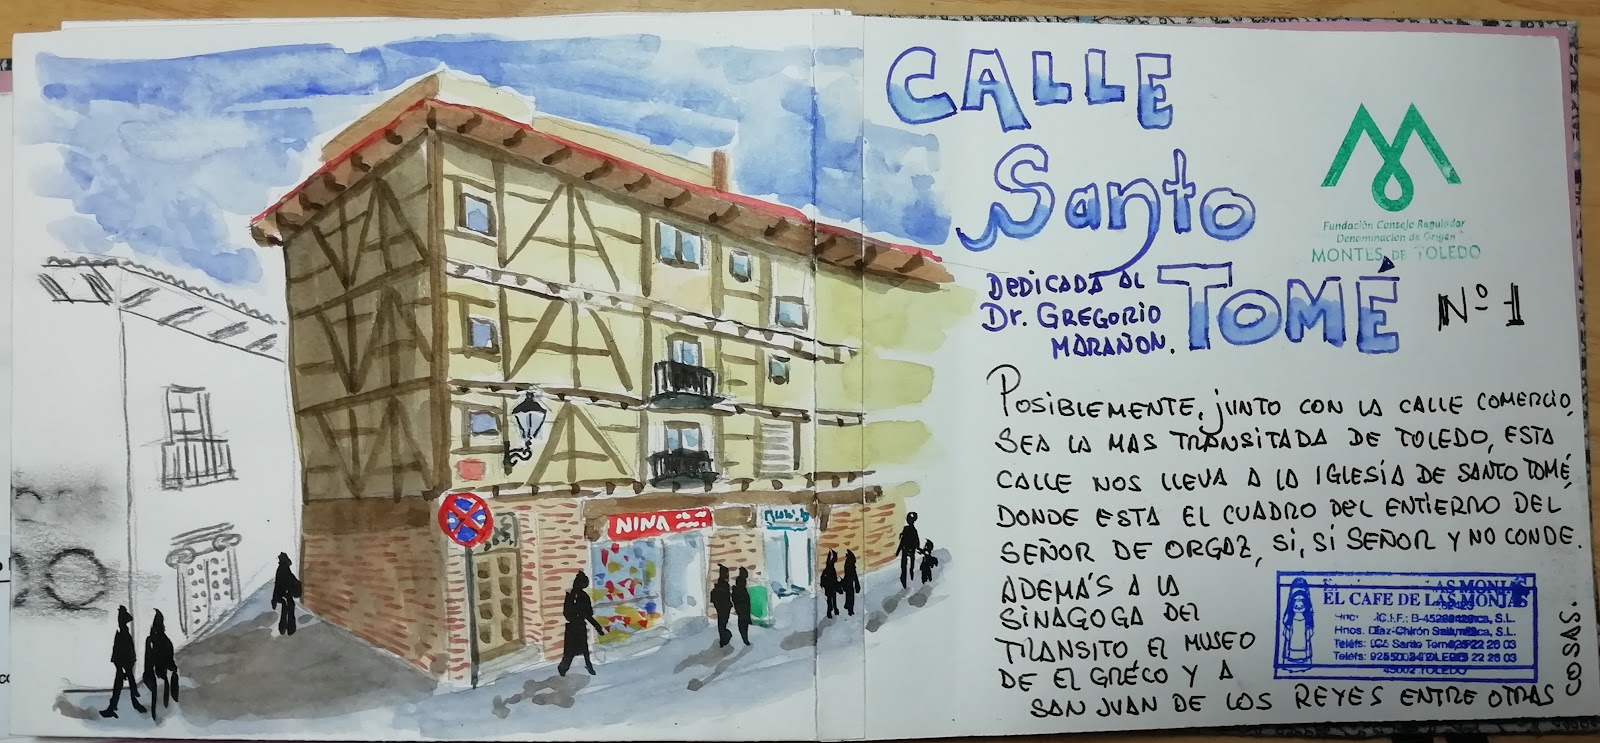 CALLE
Santo
TOMÉ
Nº 1
DEDICADA AL
Dr. GREGORIO
MARAÑON.
Fundación Consejo Regulador
Denominación de Origen
MONTES DE TOLEDO
POSIBLEMENTE, JUNTO CON LA CALLE COMERCIO,
SEA LA MAS TRANSITADA DE TOLEDO, ESTA
CALLE NOS LLEVA A LA IGLESÍA DE SANTO TOMÉ,
DONDE ESTA EL CUADRO DEL ENTIERRO DEL
SEÑOR DE ORGAZ, SI, SÍ SEÑOR Y NO CONDE.
ADEMÁS A LA
SINAGOGA DEL
TRANSITO EL MUSEO
DE EL GRÉCO Y A
SAN JUAN DE LOS REYES ENTRE OTRAS
COSAS.
EL CAFE DE LAS MONJAS
C.I.F.: B-45 S.L.
Hnos. Díaz-Chirón S.L.
Teléfs: Santo Tomé 22 26 03
Teléfs: 925 22 26 03
45002 TOLEDO
NINA